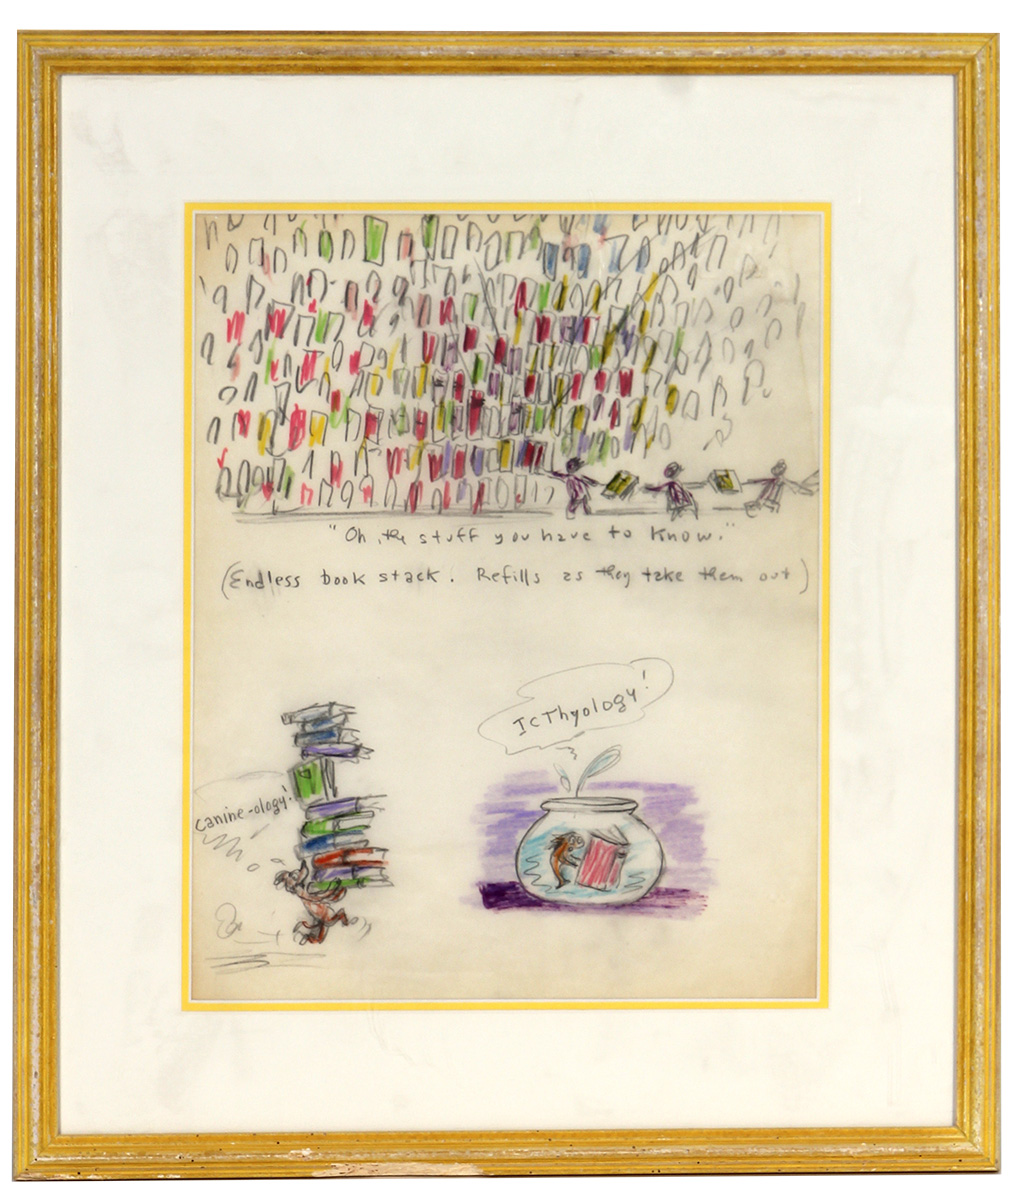 "Oh, the stuff you have to know."
(Endless book stack. Refills as they take them out)
IcThyology!
canine-ology!